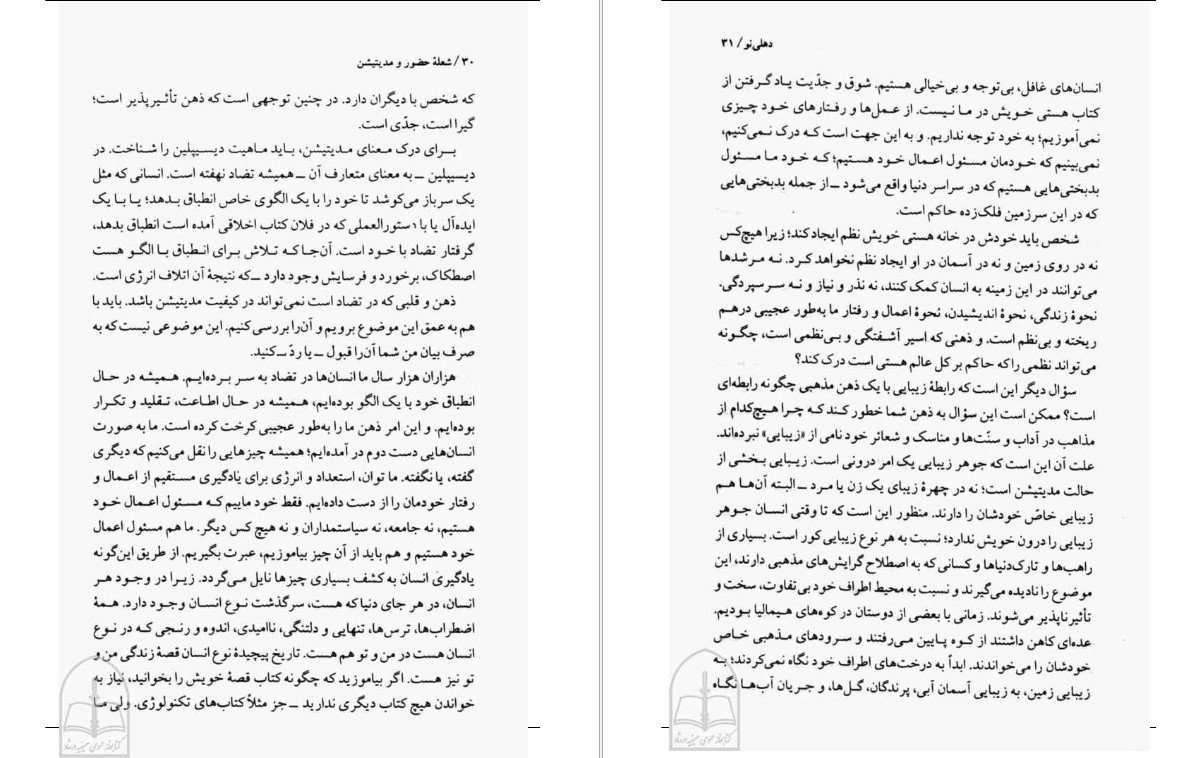 ۳۰ / شعلهٔ حضور و مدیتیشن
که شخص با دیگران دارد. در چنین توجهی است که ذهن تأثیرپذیر است؛
گیرا است، جدّی است.
بـرای درک معنای مدیتیشن، بـاید مـاهیت دیسـیپلین را شناخت. در
دیسیپلین ــ به معنای متعارف آن ــ همیشه تضاد نهفته است. انسانی که مثل
یک سرباز می‌کوشد تا خود را با یک الگوی خاص انطباق بدهد؛ یـا بـا یک
ایده‌آل یا با دستورالعملی که در فلان کتاب اخلاقی آمده است انطباق بدهد،
گرفتار تضاد با خـود است. آن‌جـاکـه تـلاش بـرای انـطباق بـا الگـو هست
اصطکاک، برخورد و فرسایش وجود دارد ــ که نتیجهٔ آن اتلاف انرژی است.
ذهن و قلبی که در تضاد است نمی‌تواند در کیفیت مدیتیشن باشد. باید با
هم به عمق این موضوع برویم و آن‌را بررسی کنیم. این موضوعی نیست که به
صرف بیان من شما آن‌را قبول ــ یا ردّ ــ کنید.
هزاران هزار سال ما انسان‌ها در تضاد به سـر بـرده‌ایـم. هـمیشه در حـال
انطباق خود با یک الگو بوده‌ایم، همیشه در حـال اطـاعت، تـقلید و تکـرار
بوده‌ایم. و این امر ذهن ما را به‌طور عجیبی کرخت کرده است. ما به صورت
انسان‌هایی دست دوم در آمده‌ایم؛ همیشه چیزهایی را نقل می‌کنیم که دیگری
گفته، یا نگفته. ما توان، استعداد و انرژی برای یادگیری مستقیم از اعمـال و
رفتار خودمان را از دست داده‌ایم. فقط خود ماییم کـه مسـئول اعمـال خـود
هستیم، نه جامعه، نه سیاستمداران و نه هیچ کس دیگر. ما هم مسئول اعمال
خود هستیم و هم باید از آن چیز بیاموزیم، عبرت بگیریم. از طریق این‌گونه
یادگیری انسان به کشف بسیاری چیزها نایل می‌گردد. زیـرا در وجـود هـر
انسان، در هر جای دنیا که هست، سرگذشت نوع انسان وجـود دارد. هـمهٔ
اضطراب‌ها، ترس‌ها، تنهایی و دلتنگی، ناامیدی، اندوه و رنـجی کـه در نـوع
انسان هست در من و تو هم هست. تاریخ پیچیدهٔ نوع انسان قصهٔ زندگی من و
تو نیز هست. اگر بیاموزید که چگونه کتاب قصهٔ خویش را بخوانید، نیاز به
خواندن هیچ کتاب دیگری ندارید ــ جز مثلاً کتاب‌های تکنولوژی. ولی مـا
دهلی‌نو / ۳۱
انسان‌های غافل، بی‌توجه و بی‌خیالی هستیم. شوق و جدّیت یـادگـرفتن از
کتاب هستی خویش در مـا نـیست. از عـمل‌ها و رفـتارهای خـود چـیزی
نمی‌آموزیم؛ به خود توجه نداریم. و به این جهت است کـه درک نـمی‌کنیم،
نمی‌بینیم که خودمان مسئول اعمال خود هستیم؛ کـه خـود مـا مسـئول
بدبختی‌هایی هستیم که در سراسر دنیا واقع می‌شود ــ از جمله بدبختی‌هایی
که در این سرزمین فلک‌زده حاکم است.
شخص باید خودش در خانه هستی خویش نظم ایجاد کند؛ زیرا هیچ‌کس
نه در روی زمین و نه در آسمان در او ایجاد نظم نخواهد کـرد. نـه مـرشدها
می‌توانند در این زمینه به انسان کمک کنند، نه نذر و نیاز و نـه سـرسپردگی.
نحوهٔ زندگی، نحوهٔ اندیشیدن، نحوهٔ اعمال و رفتار ما به‌طور عجیبی درهـم
ریخته و بی‌نظم است. و ذهنی که اسیر آشـفتگی و بـی‌نظمی است، چگـونه
می‌تواند نظمی را که حاکم بر کل عالم هستی است درک کند؟
سؤال دیگر این است که رابطهٔ زیبایی با یک ذهن مذهبی چگونه رابطه‌ای
است؟ ممکن است این سؤال به ذهن شما خطور کنـد کـه چـرا هـیچ‌کدام از
مذاهب در آداب و سنّت‌ها و مناسک و شعائر خود نامی از «زیبایی» نبرده‌اند.
علت آن این است که جوهر زیبایی یک امر درونی است. زیـبایی بـخشی از
حالت مدیتیشن است؛ نه در چهرهٔ زیبای یک زن یا مرد ــ البته آن‌ها هـم
زیبایی خاصّ خودشان را دارند. منظور این است که تا وقتی انسان جـوهر
زیبایی را درون خویش ندارد؛ نسبت به هر نوع زیبایی کور است. بسیاری از
راهب‌ها و تارک‌دنیاها و کسانی که به اصطلاح گرایش‌های مذهبی دارند، این
موضوع را نادیده می‌گیرند و نسبت به محیط اطراف خود بی‌تفاوت، سخت و
تأثیرناپذیر می‌شوند. زمانی با بعضی از دوستان در کوه‌های هیمالیا بودیم.
عده‌ای کاهن داشتند از کـوه پایین مـی‌رفتند و سـرودهای مـذهبی خـاص
خودشان را می‌خواندند. ابداً به درخت‌های اطراف خود نگاه نمی‌کردند؛ بـه
زیبایی زمین، به زیبایی آسمان آبی، پرندگان، گل‌ها، و جریان آب‌هـا نگـاه